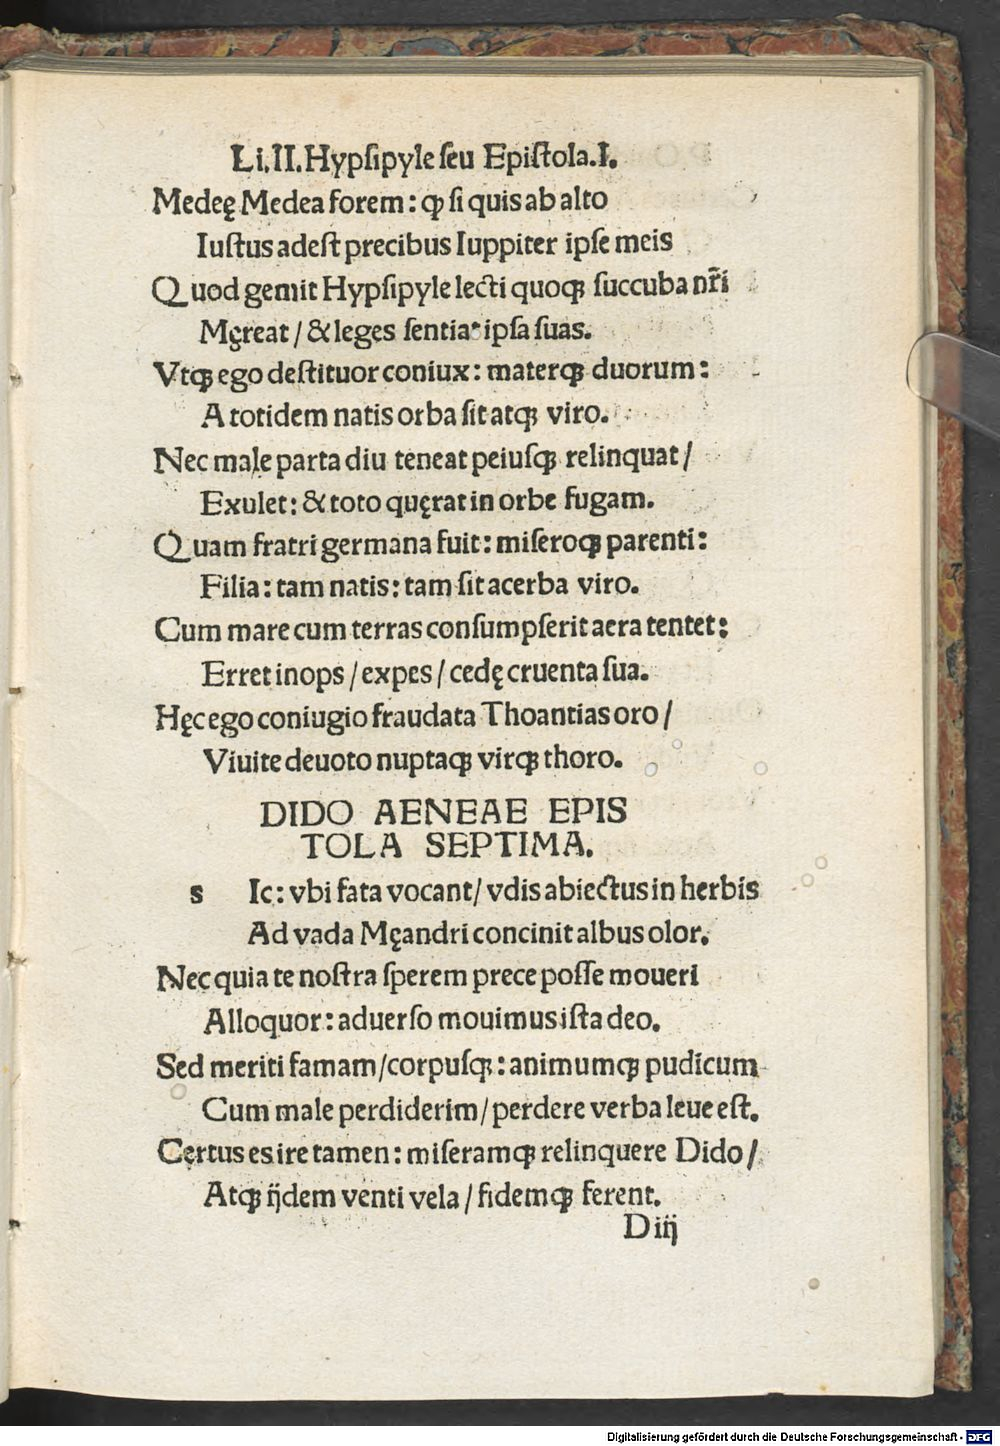 Li.II.Hypſipyle ſeu Epiſtola.I.
Medeę Medea forem: ꝙ ſi quis ab alto
Iuſtus adeſt precibus Iuppiter ipſe meis
Quod gemit Hypſipyle lecti quoqꝫ ſuccuba nr̃i
Męreat / & leges ſentiat ipſa ſuas.
Vtqꝫ ego deſtituor coniux: materqꝫ duorum:
A totidem natis orba ſit atqꝫ viro.
Nec male parta diu teneat peiuſqꝫ relinquat /
Exulet: & toto quęrat in orbe fugam.
Quam fratri germana fuit: miſeroqꝫ parenti:
Filia: tam natis: tam ſit acerba viro.
Cum mare cum terras conſumpſerit aera tentet:
Erret inops / expes / cedę cruenta ſua.
Hęc ego coniugio fraudata Thoantias oro /
Viuite deuoto nuptaqꝫ virqꝫ thoro.
DIDO AENEAE EPIS
TOLA SEPTIMA.
s Ic: vbi fata vocant/ vdis abiectus in herbis
Ad vada Męandri concinit albus olor.
Nec quia te noſtra ſperem prece poſſe moueri
Alloquor: aduerſo mouimus iſta deo.
Sed meriti famam/corpuſqꝫ: animumqꝫ pudicum
Cum male perdiderim/ perdere verba leue eſt.
Cęrtus es ire tamen: miſeramqꝫ relinquere Dido /
Atqꝫ ijdem venti vela / fidemqꝫ ferent.
D iij
Digitalisierung gefördert durch die Deutsche Forschungsgemeinschaft - DFG